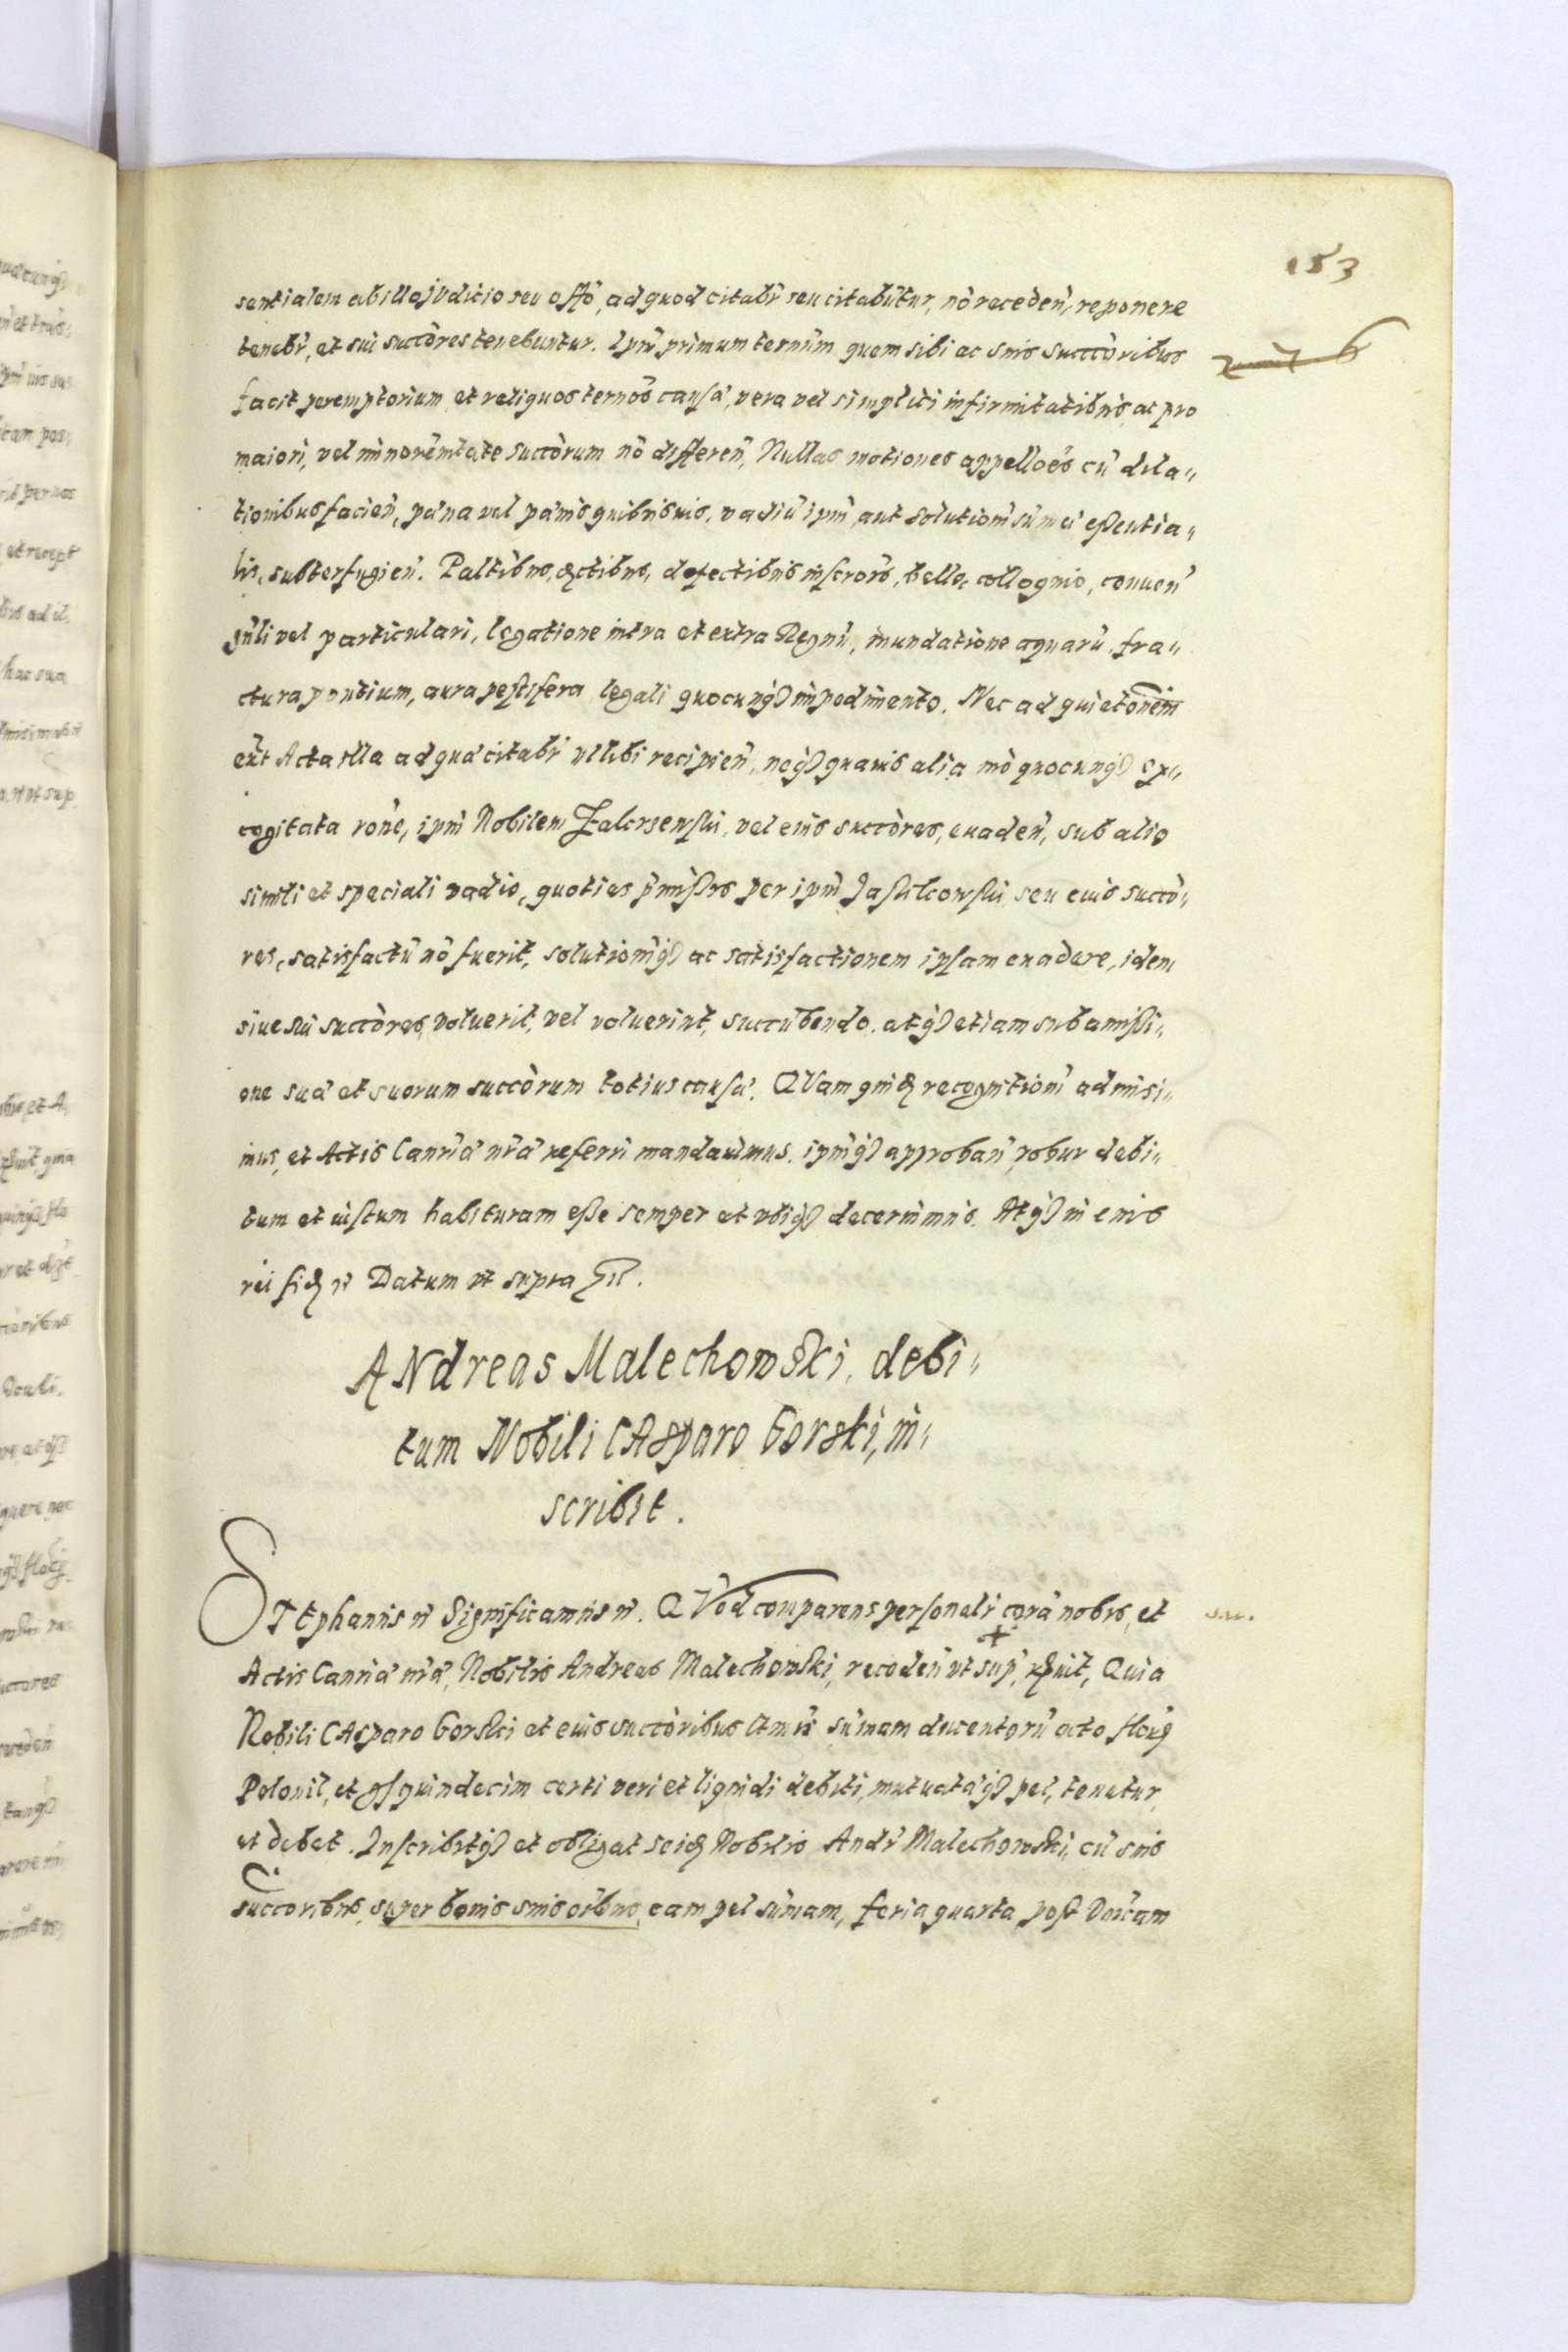 153
sentialem ab illo judicio seu offō, ad quod citabr̄ seu citabūtur, nō receden̄, reponere
tenebr̄, et sui succ̄ores tenebuntur. Ipm̄ primum termīnm quem sibi ac suis succ̄oribus
facit peremptorium et reliquos termōs causā, vera vel simplici infirmitatibus, ac pro
maiori, vel minorēnitate succ̄orum nō differen̄, Nullas motiones appelloēs cū dila„
tionibus facien̄, pæna vel pænis quibusvis, vadiū ipm̄ aut solutionē sūmæ essentia„
lis, subterfugien̄. Paltibus, actibus, defectibus inscrōis, bello, colloquio, conuen̄
gn̄li vel particulari, legatione intra et extra Regnū, inundatione aquarū, fra„
ctura pontium, aura pestifera legali quocunq̄ impedimento. Nec ad quietōnem
ext Acta illa ad quæ citabr̄ vl libi recipien̄, neq̄ quavis alia mō quocunq̄ ex„
cogitata rōne, ipm̄ Nobilem vel eius succ̄ores, euaden̄, sub alio
simili et speciali vadio, quoties p̄missis per ipm̄ seu eius succō„
res, satisfactū nō fuerit, solutionēq̄ ac satisfactionem ipsam euadere, idem
siue sui succ̄ores, voluerit, vel voluerint, succūbendo. atq̄ etiam sub amissi„
one suæ et suorum succ̄orum totius causæ. QVam quid recognitionē admisi„
mus, et Actis Canr̄iæ nr̄æ referri mandauimus. ipmq̄ approban̄ robur debi„
tum et iustum habituram esse semper et vbiq̄ decernimus. Atq̄ in eius
rei fid Datum vt supra
ANdreas Malechowski, debi„
tum Nobili CAsparo Gorski, in„
scribit.
STEphanus Significamus. QVod comparens personalr̄ corā nobis, et
Actis Canr̄iæ nr̄æ, Nobilis Andreas Malechowski, receden̄ vt sup, Quia
Nobili CAsparo Gorski et eius succ̄oribus sūmam ducentorū octo flor
Polonil, et gs quindecim certi veri et liquidi debiti, mutuatæq̄ pel, tenetur,
et debet. Inscribitq̄ et obligat se id Nobilis Andr̄ Malechowski, cū suis
succoribus, super bonis suis oībus, eam pel sūmam, feria quarta post Doīcam